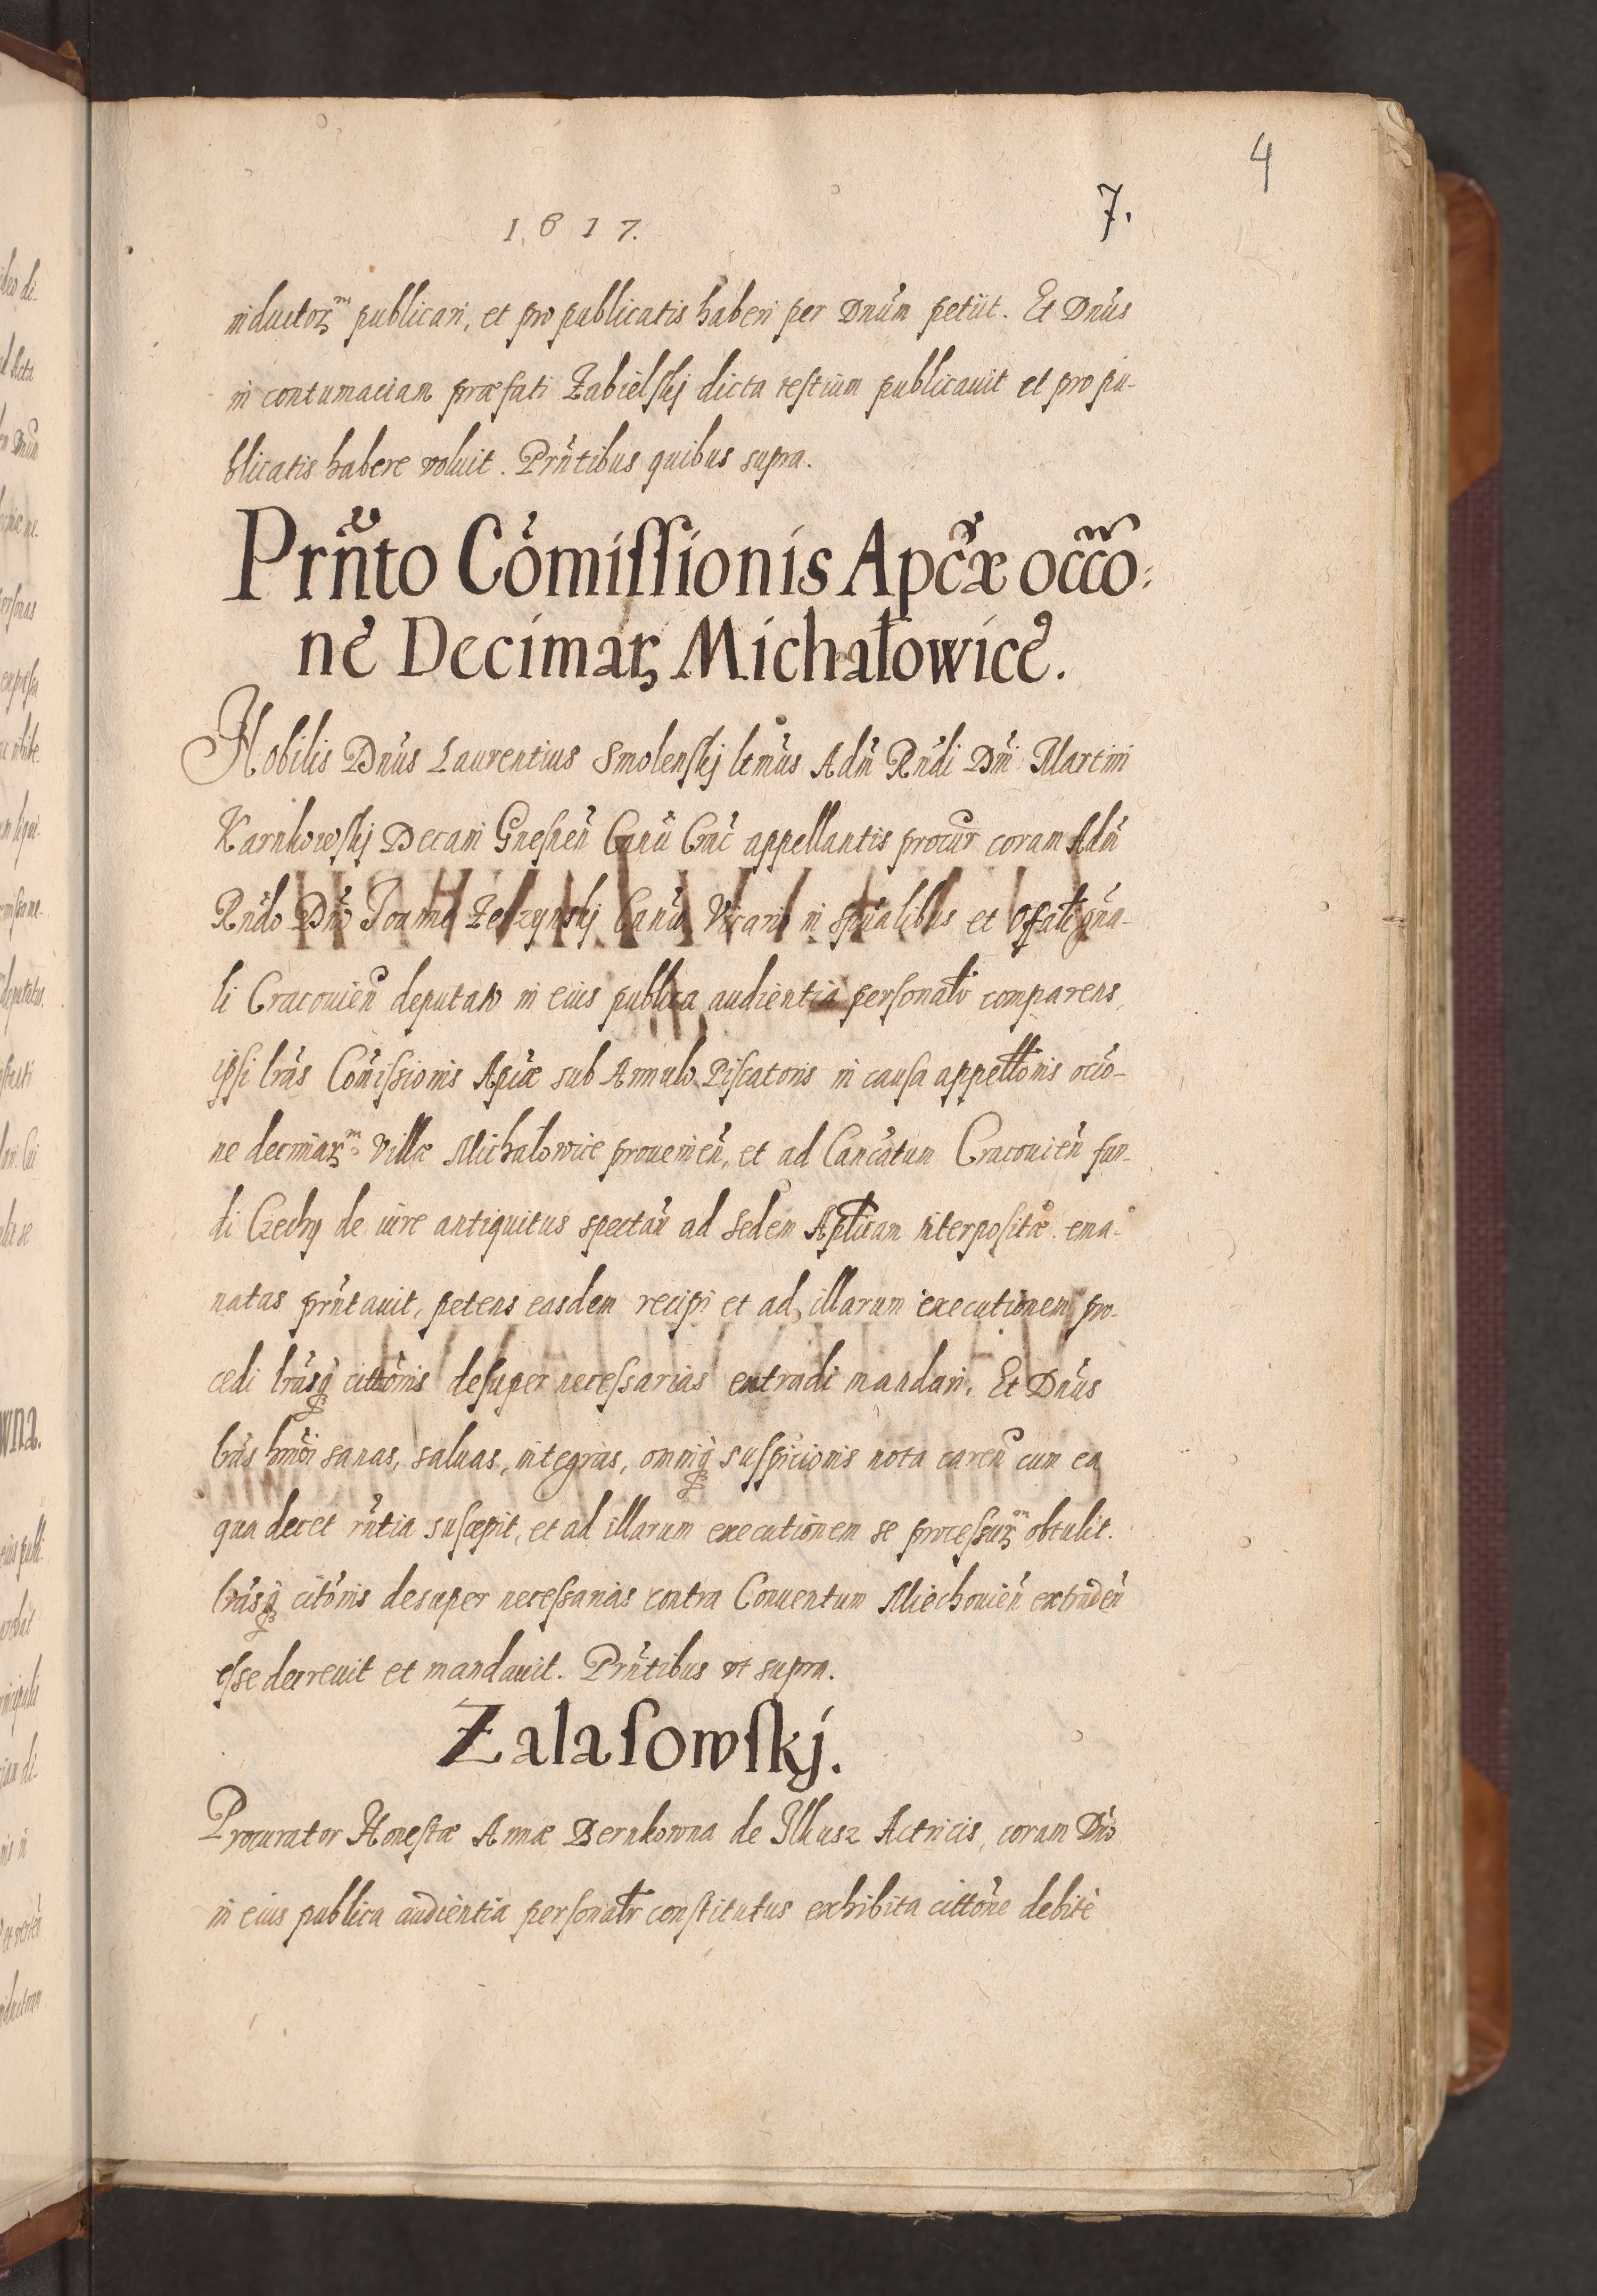 4
7.
1617.
inductorꝝ^m publicari, et pro publicatis haberi per Dnūm petiit. Et Dnūs
in contumaciam præfati Zabielskj dicta testium publicauit et pro pu-
blicatis habere voluit. Prn̄tibus quibus supra.
Prn̄to Cōmissionis Apc̄æ occ̄o:
ne Decimaꝝ Michałowice.
Nobilis Dnūs Laurentius Smolenskj ltm̄us Adm̄ Rn̄di Dn̄i Martini
Karnkowskj Decani Gnesnen̄ Canc̄i Crac̄ appellantis procur̄ coram Adm̄
Rn̄do Dn̄o Joanne Canco Vicario in sp̄ualibus et Off̄ali gn̄a-
li Cracouien̄ deputato in eius publica audientia personal̄r comparens,
ipsi lr̄as Com̄issionis Ap̄cæ sub Annulo Piscatoris in causa appellōnis occ̄o-
ne decimaꝝ^m villæ Michałowice prouenien̄, et ad Canc̄atum Cracouien̄ fun-
di Czechy de iure antiquitus spectan̄ ad sedem Ap̄licam interpositæ ema-
natas prn̄tauit, petens easdem recipi et ad illarum executionem pro-
cedi lr̄asq̄ citt̄onis desuper necessarias extradi mandari. Et Dnūs
lr̄as hm̄oi sanas, saluas, integras, omniq̄ suspicionis nota caren̄ cum ea
qua decet rn̄tia suscepit, et ad illarum executionem se processuꝝ^m obtulit.
lr̄asq̄ cit̄onis desuper necessarias contra Conuentum Miechouien̄ extraden̄
esse decreuit et mandauit. Prn̄tibus vt supra.
Zalasowskj.
Procurator Honestæ Annæ Bernkowna de Ilkusz Actricis, coram Dn̄o
in eius publica audientia personal̄r constitutus exhibita citt̄one debitè